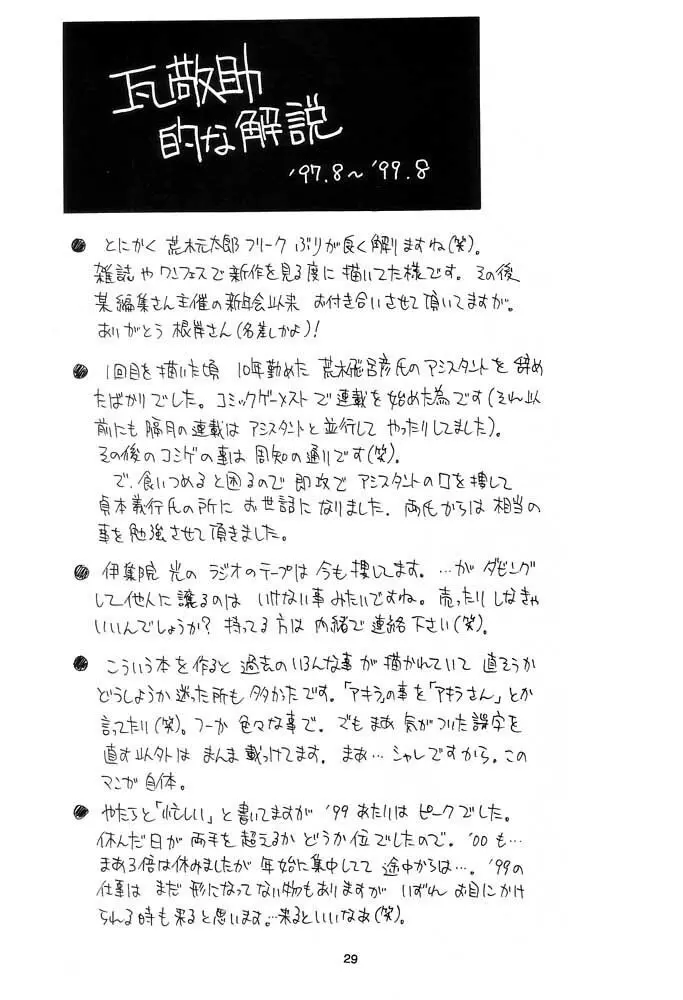 瓦敬助
的な解説
'97.8～'99.8
● とにかく 荒木元太郎フリーク ぶりが良く解りますね(笑)。
雑誌や ワンフェスで新作を見る度に 描いてた様です。その後
某編集さん主催の新年会以来 お付き合いさせて頂いてますが。
ありがとう 根岸さん(名差しかよ)!
● 1回目を描いた頃 10年勤めた 荒木飛呂彦氏のアシスタントを 辞め
たばかりでした。コミックゲーメストで連載を始めた為です(それ以
前にも 隔月の連載は アシスタントと並行して やったりしてました)。
その後のコミゲの事は 周知の通りです(笑)。
で、食いつめると困るので 即攻で アシスタントの口を捜して
貞本義行氏の所に お世話になりました。両氏からは 相当の
事を勉強させて頂きました。
● 伊集院 光の ラジオのテープは 今も 捜してます。…が ダビング
して他人に譲るのは いけない事みたいですね。売ったりしなきゃ
いいんでしょうか? 持ってる方は 内緒で連絡下さい(笑)。
● こういう本を作ると 過去のいろんな事が 描かれていて 直そうか
どうしようか 迷った所も 多かったです。「アキラ」の事を「アキラさん」とか
言ってたり(笑)。つーか 色々な事で。でもまあ 気がついた誤字を
直す以外は まんま 載っけてます。まぁ… シャレですから。この
マンガ自体。
● やたらと「忙しい」と書いてますが '99あたりは ピークでした。
休んだ日が 両手を超えるか どうか位でしたので。'00も…
まあ3倍は休みましたが 年始に集中してて 途中からは…。'99の
仕事は まだ 形になってない物もありますが いずれ お目にかけ
られる時も来ると思います。…来るといいなあ(笑)。
29